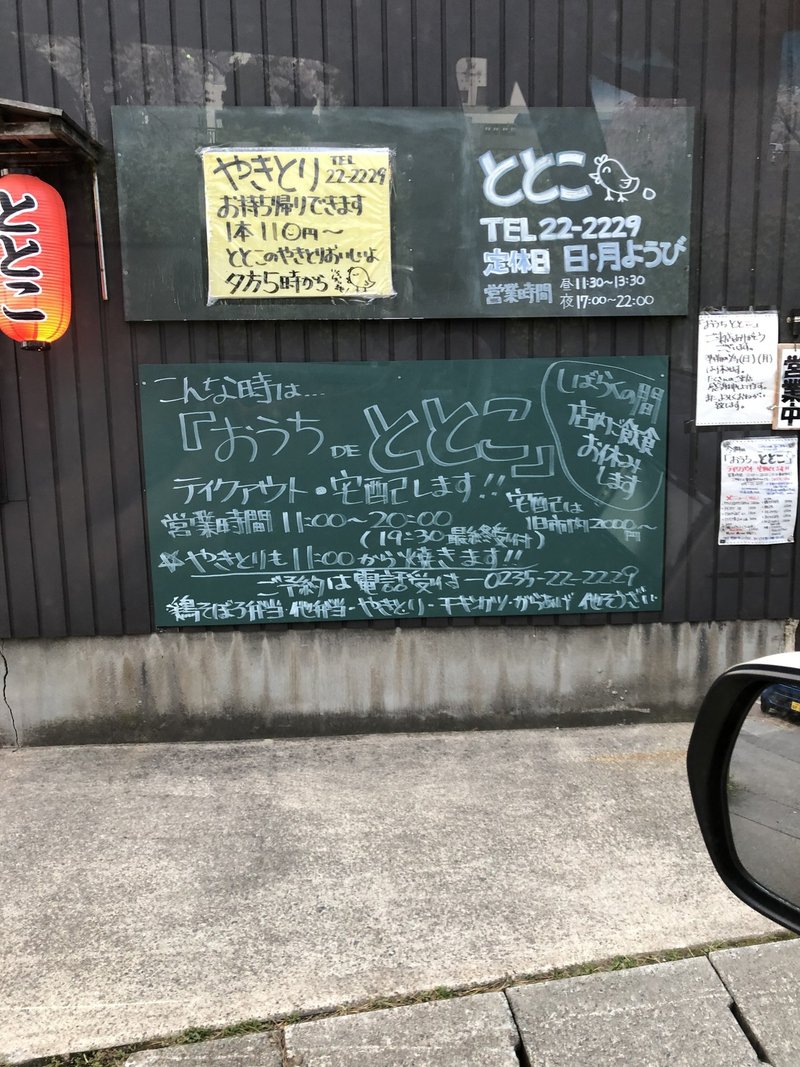 ととこ
やきとり TEL 22-2229
お持ち帰りできます
1本 110円〜
ととこのやきとりおいしいよ
夕方5時から
ととこ
TEL 22-2229
定休日 日・月ようび
営業時間 昼 11:30~13:30
夜 17:00~22:00
こんな時は…
『おうち DE ととこ』
しばらくの間
店内飲食
お休みします
テイクアウト・宅配します!!
営業時間 11:00〜20:00
(19:30 最終受付)
宅配は
旧市内 2000〜円
☆やきとりも 11:00 から焼きます!!
ご予約は電話受付 0235-22-2229
鶏そぼろ弁当 他弁当・やきとり・チキンカツ・からあげ 他そうざい
『おうちととこ』
ございます。
営業中
『おうち ととこ』
テイクアウト 宅配します!!